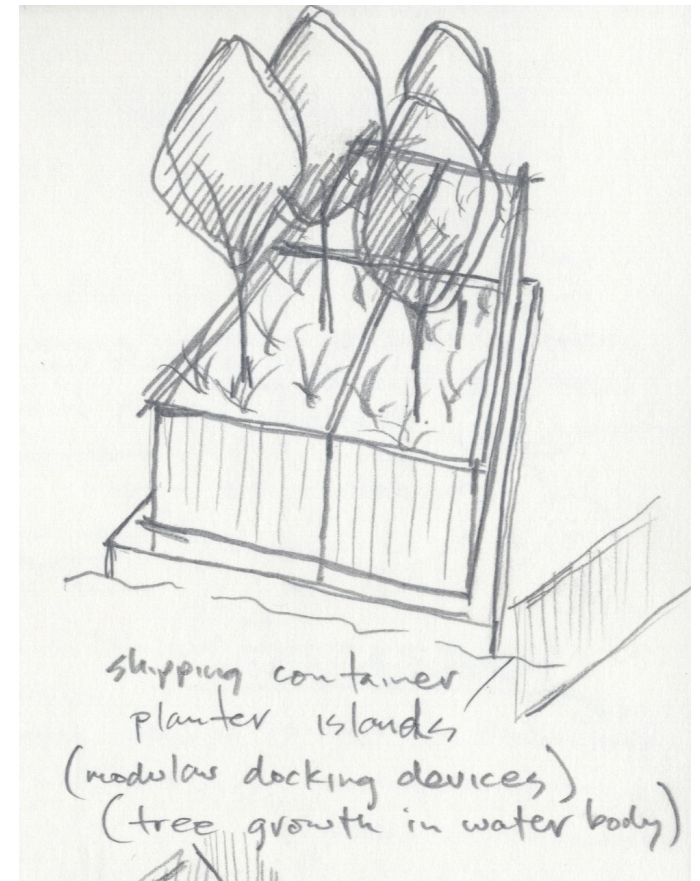 shipping container
planter islands
(modular docking devices)
(tree growth in water body)